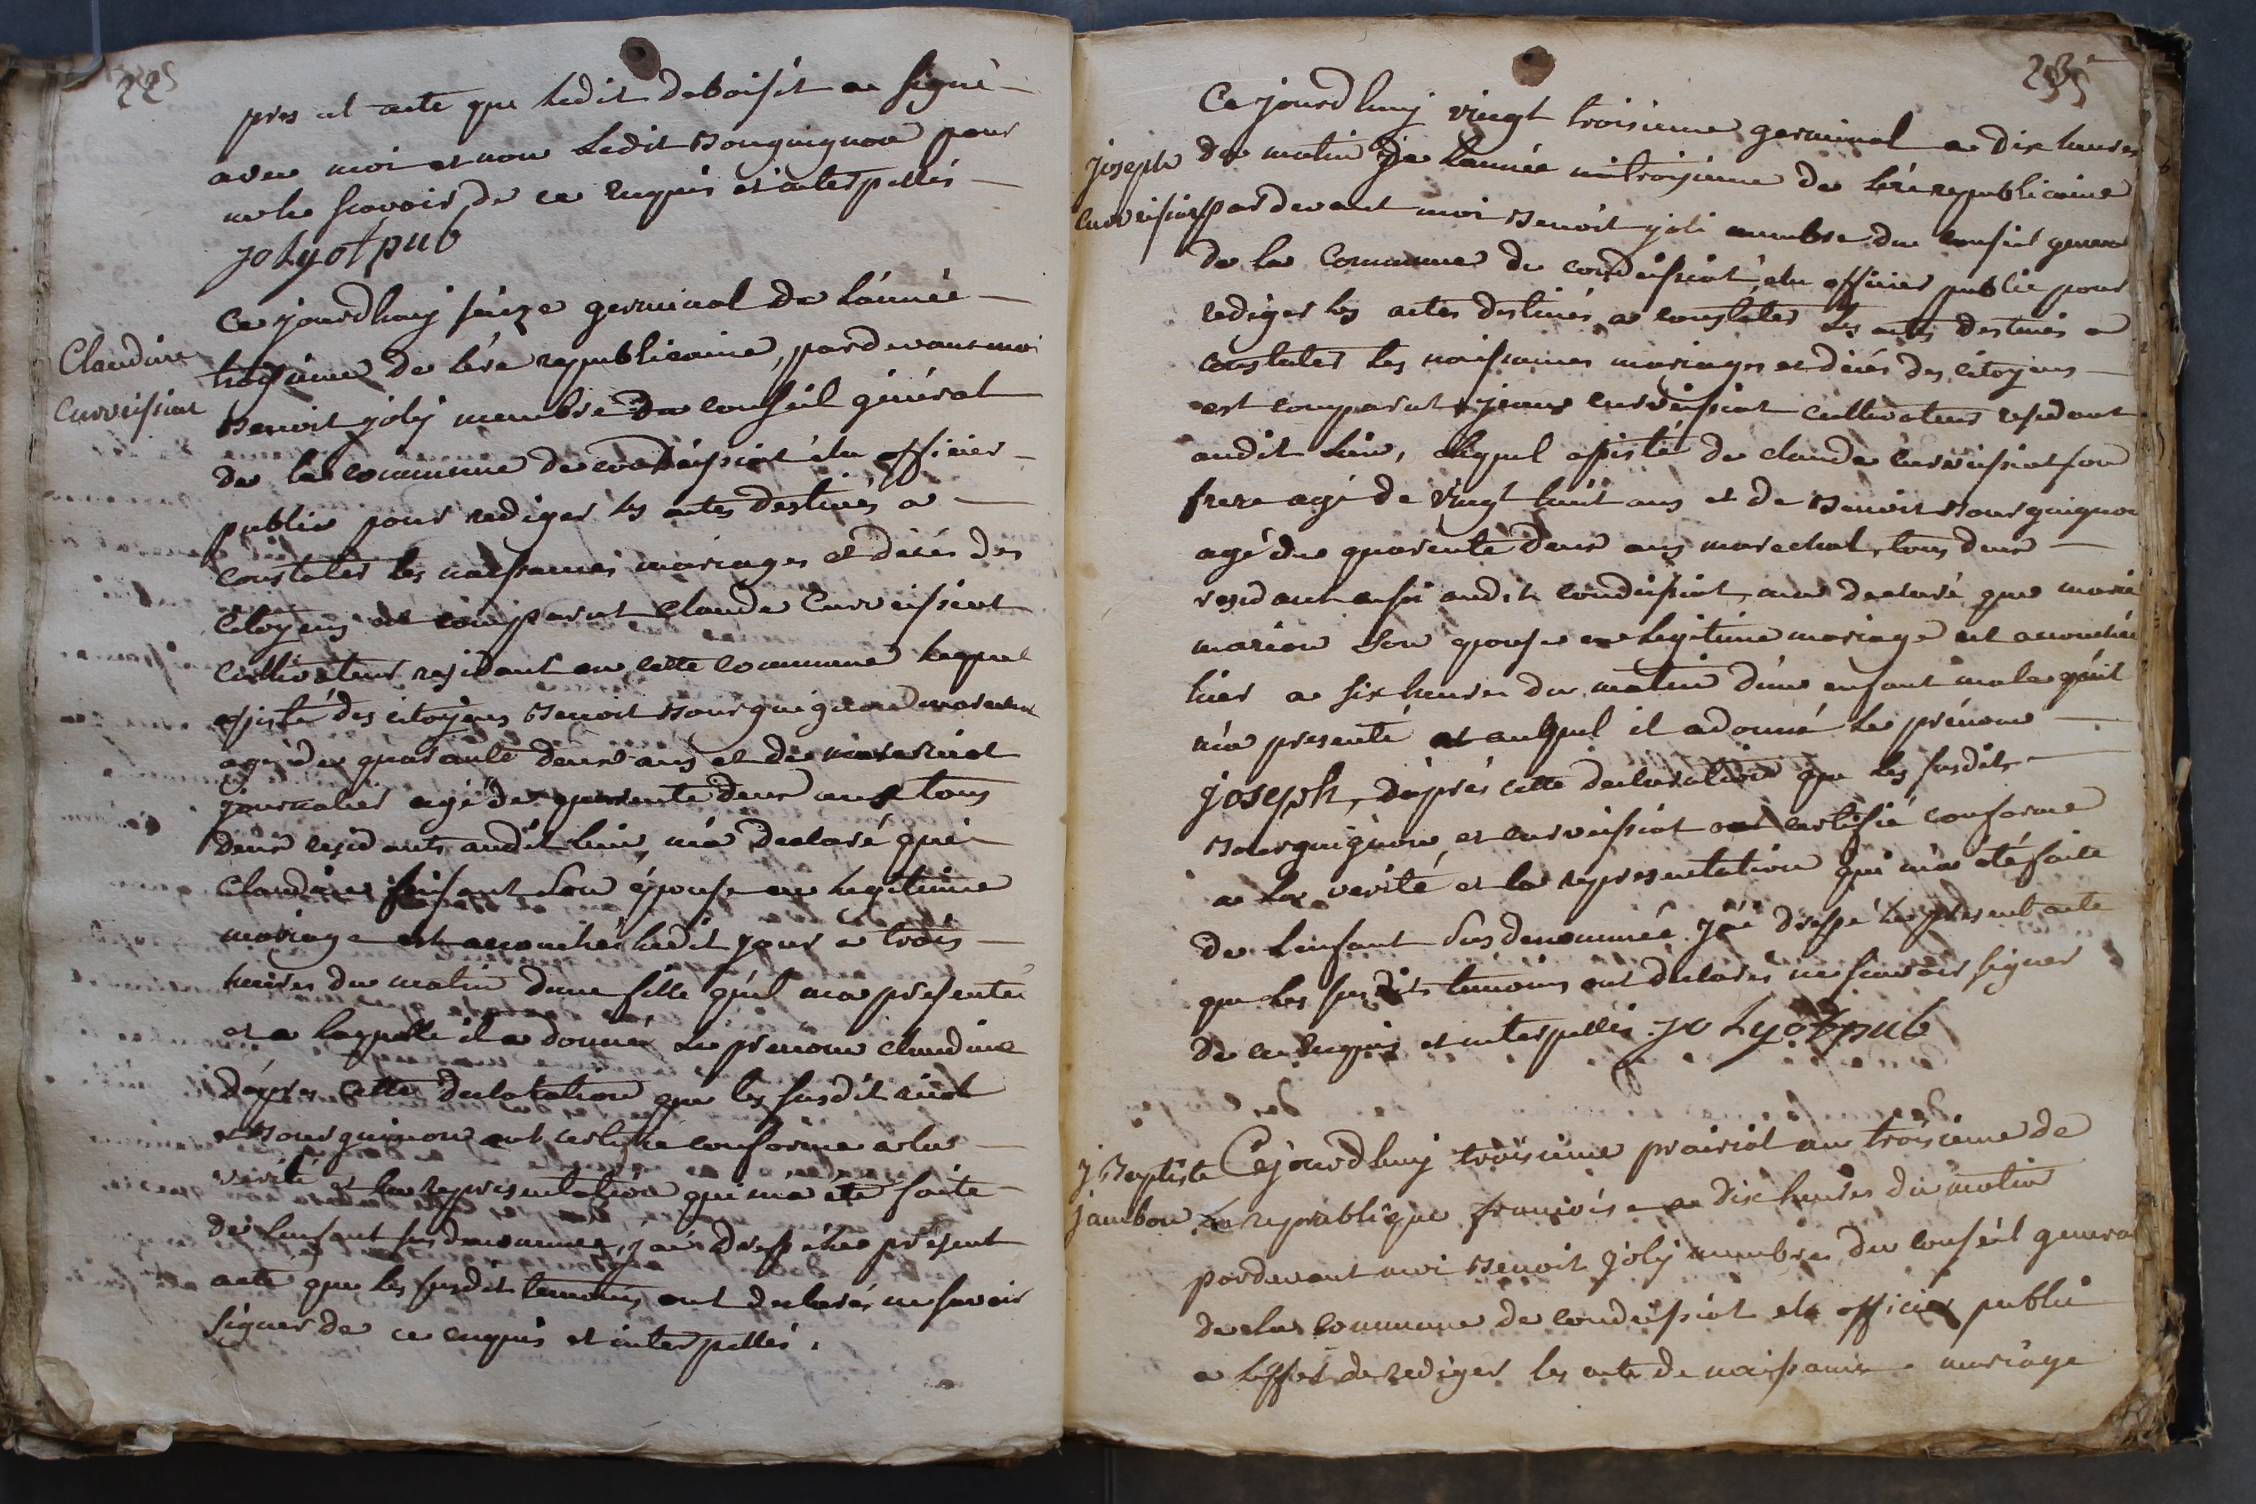 225
pres et acte que ledit deboisit a signé
avec moi et non ledit Bourguignon pour
ne le scavoir de ce requis et interpellés
joly of pub
Claudine
Curveissiat
Ce jourdhuy seize germinal de l'année
troisieme de l'ére republicaine, pardevant moi
Benoit joly membre du conseil général
de la commune de condeissiat élu officier
public pour rediger les actes destinés a
constater les naissances mariages et décés des
citoyens est comparut Claude Curveissiat
cultivateur residant en cette commune lequel
assisté des citoyens Benoit Bourguignon marechal
agé de quarante deux ans et de
journalier agé de quarente deux ans tous
deux residants audit lieu, m'a declaré que
Claudine son épouse en legitime
mariage est accouchée ledit jour a trois
heures du matin dune fille qu'il ma presentée
et a laquelle il a donné le prenom claudine
d'apres cette declaration que les susdit
et Bourguinon ont certifié conforme a la
verité et la representation qui m'a eté faite
de lenfant sus denommée, j'ai dressé le présent
acte que les susdit temoins ont declarés ne savoir
signer de ce enquis et interpellés.
235
Joseph
Curveissiat
Ce jourdhuy vingt troisieme germinal a dix heures
du matin de l'année troisieme de l'ére republicaine
pardevant moi Benoit joli membre du conseil general
de la Commune de condeissiat, elu officier public pour
rediger les actes destinés a constater les actes destinés a
constater les naissances mariages et décés des citoyens
est comparut curveissiat cultivateur residant
audit lieu, lequel assisté de claude curveissiat son
frere agé de vingt huit ans et de Benoit Bourguignon
agé de quarente deux ans marechal, tous deux
residants audit condeissiat, m'a declaré que marie
marion son epouse en legitime mariage est accouchée
hier a six heures du matin d'une enfant male qu'il
m'a presenté et auquel il a donné le prénom
joseph, d'aprés cette declaration que les susdits
Bourguignon et curveissiat ont certifié conforme
a la verité et la representation qui m'a eté faite
de lenfant sus denommée j'ai dressé le present acte
que les susdits temoins ont declarés ne scavoir signer
de ce enquis et interpellés. joly of pub
j Baptiste
jambon
Cejourdhuy troisieme prairial an troisieme de
la republique françoise a dix heures du matin
pardevant moi Benoit joly membre du conseil general
de la commune de condeissiat elu officier public
a leffet de rediger les acte de naissance mariage